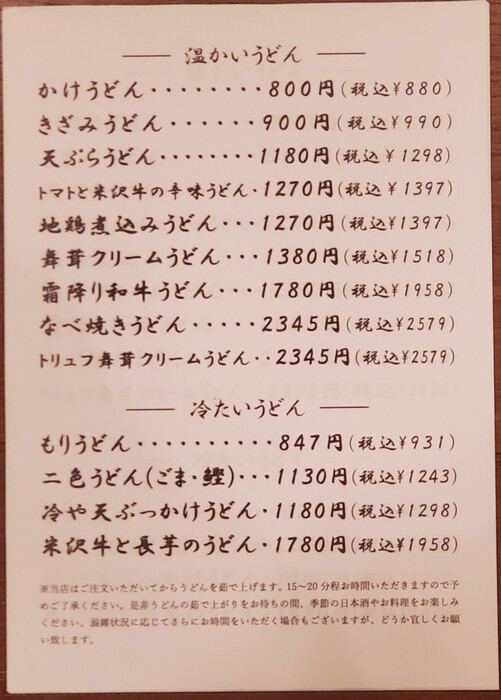 温かいうどん
かけうどん・・・・・・・・800円(税込¥880)
きざみうどん・・・・・・900円(税込¥990)
天ぷらうどん・・・・・・・・1180円(税込¥1298)
トマトと米沢牛の辛味うどん・1270円(税込¥1397)
地鶏煮込みうどん・・・1270円(税込¥1397)
舞茸クリームうどん・・・1380円(税込¥1518)
霜降り和牛うどん・・・1780円(税込¥1958)
なべ焼きうどん・・・・・2345円(税込¥2579)
トリュフ舞茸クリームうどん・・2345円(税込¥2579)
冷たいうどん
もりうどん・・・・・・・・・・847円(税込¥931)
二色うどん(ごま・鰹)・・・1130円(税込¥1243)
冷や天ぶっかけうどん・1180円(税込¥1298)
米沢牛と長芋のうどん・1780円(税込¥1958)
※当店はご注文いただいてからうどんを茹で上げます。15~20分程お時間いただきますので予
めご了承ください。是非うどんの茹で上がりをお待ちの間、季節の日本酒やお料理をお楽しみ
ください。混雑状況に応じてさらにお時間をいただく場合もございますが、どうか宜しくお願
い致します。